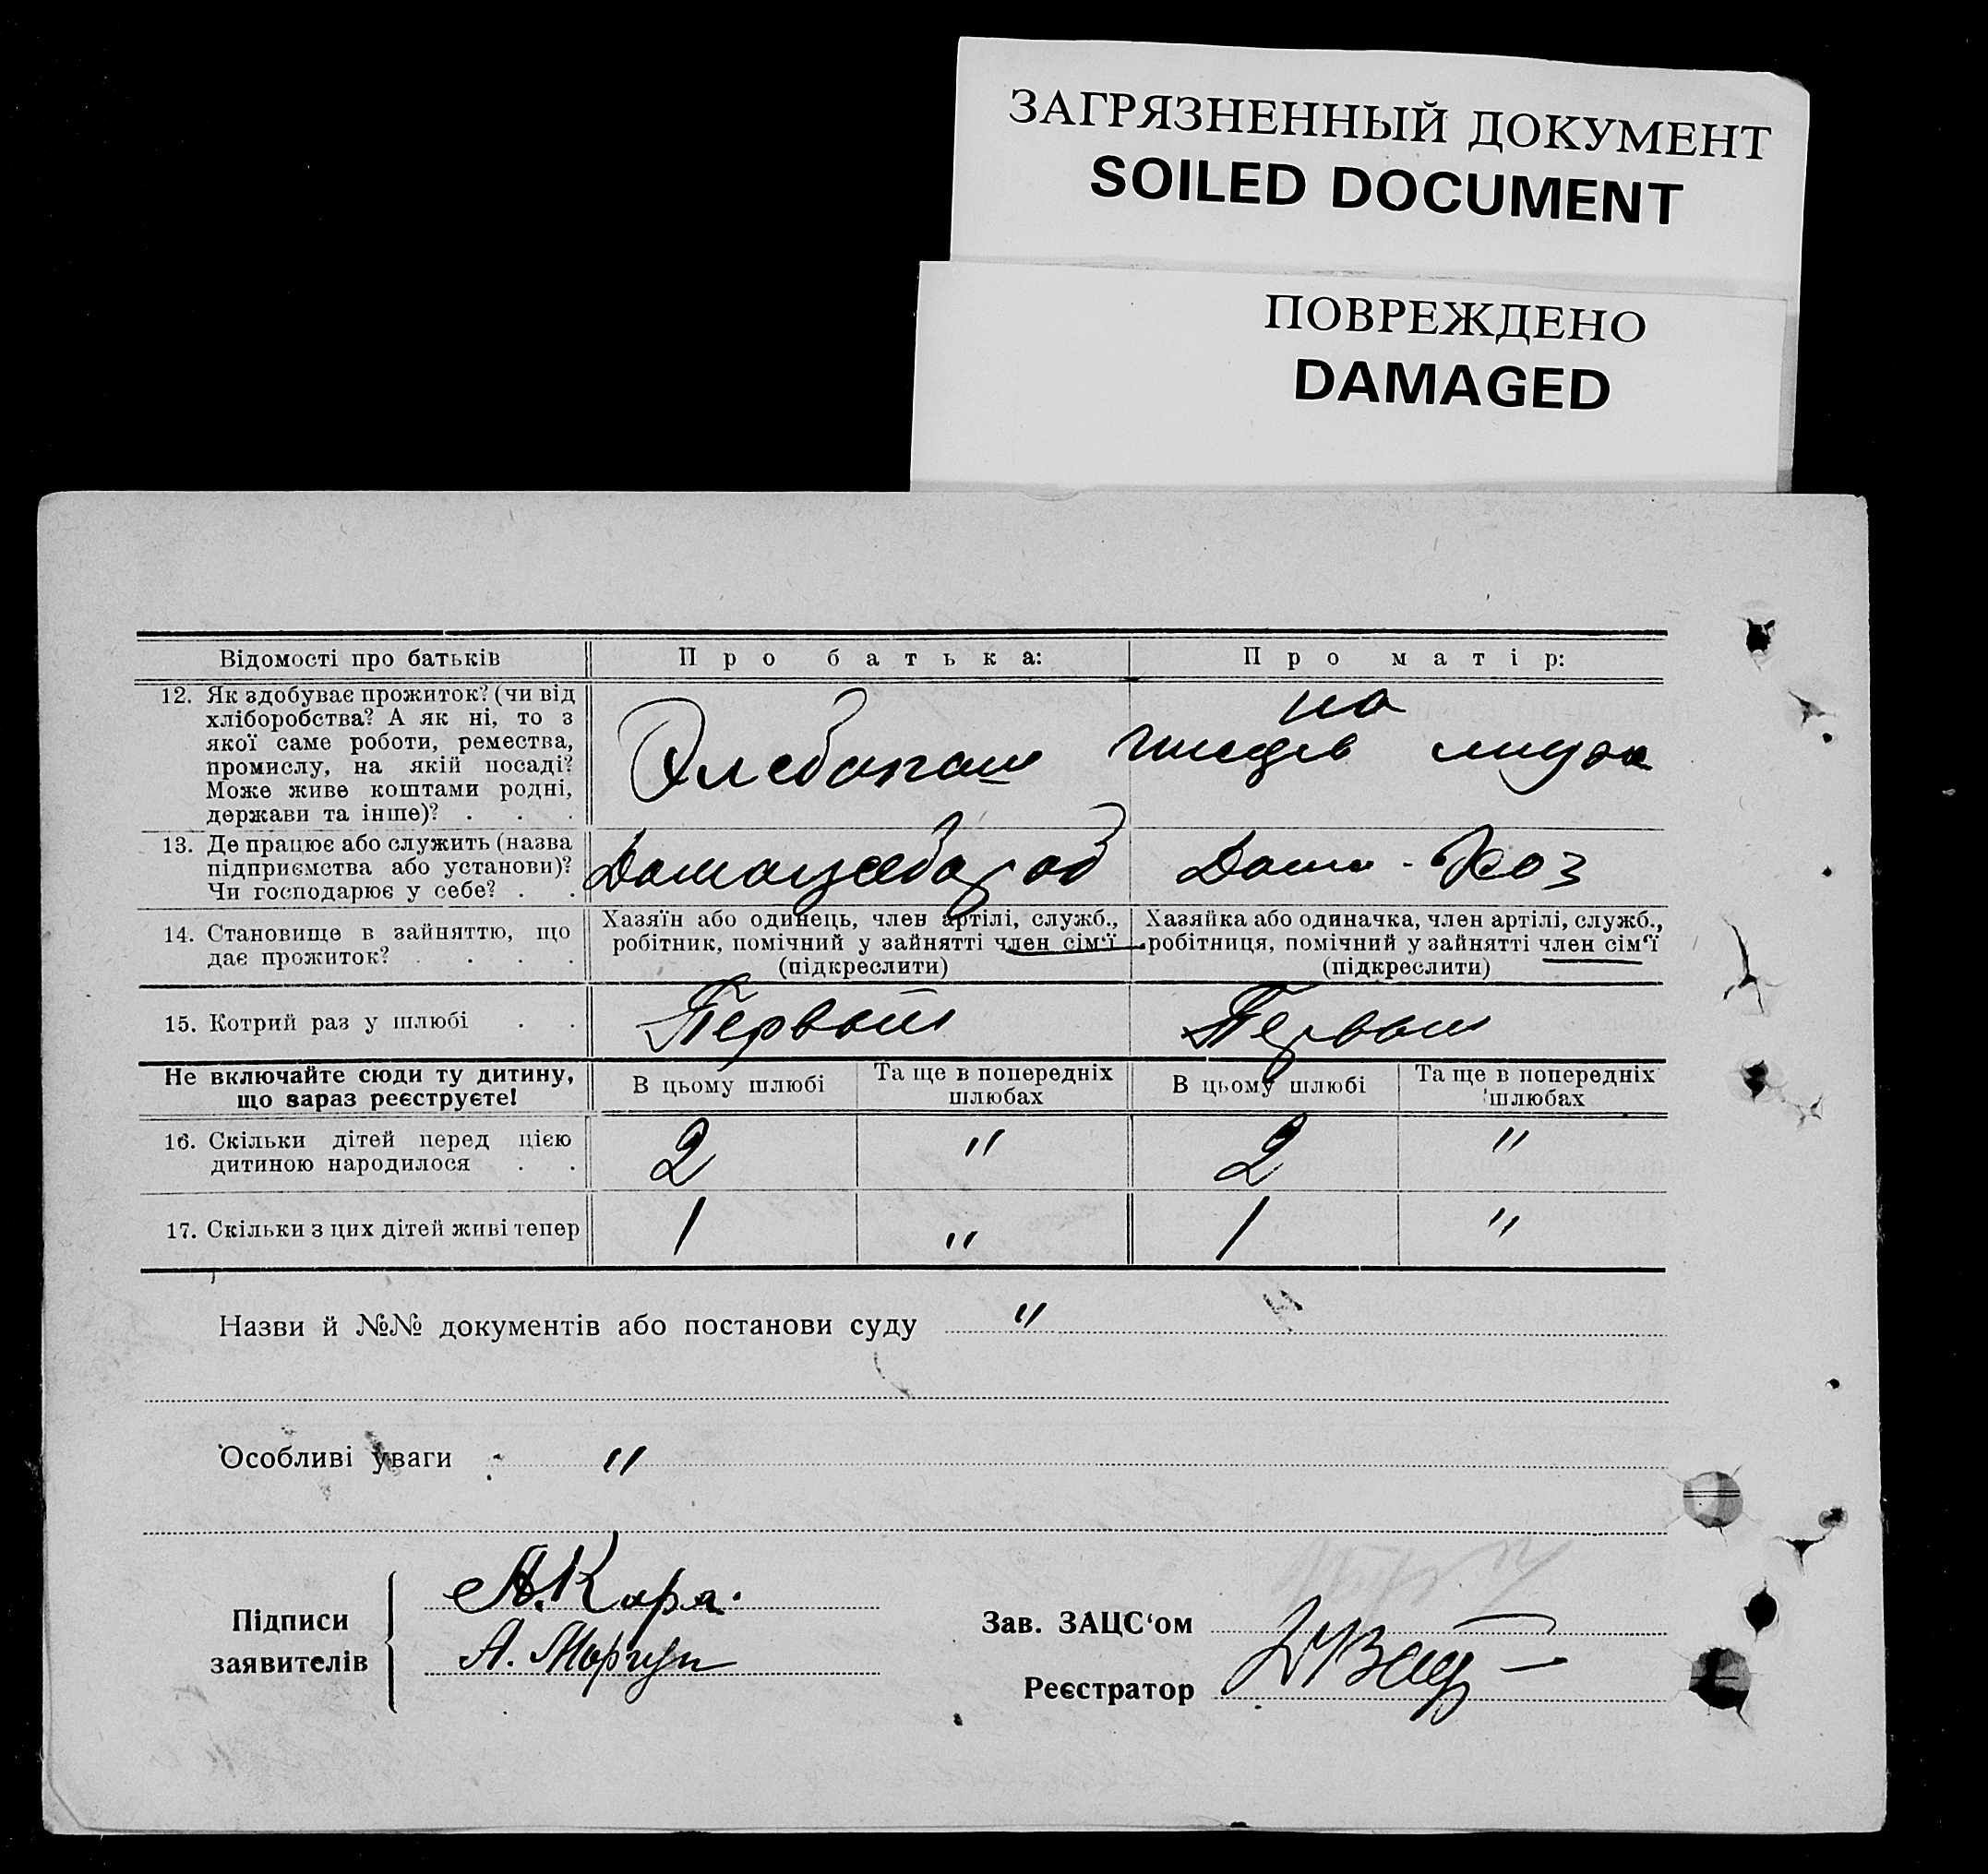 ЗАГРЯЗНЕННЫЙ ДОКУМЕНТ
SOILED DOCUMENT
ПОВРЕЖДЕНО
DAMAGED
Відомості про батьків
Про батька:
Про матір:
12. Як здобуває прожиток? (чи від
хліборобства? А як ні, то з
якої саме роботи, ремества,
промислу, на якій посаді?
Може живе коштами родні,
держави та інше)? . . .
на
мужа
13. Де працює або служить (назва
підприємства або установи)?
Чи господарює у себе? . .
14. Становище в зайняттю, що
дає прожиток? . . . .
Хазяїн або одинець, член артілі, служб.,
робітник, помічний у зайнятті член сім‘ї
(підкреслити)
Хазяйка або одиначка, член артілі, служб.,
робітниця, помічний у зайнятті член сім‘ї
(підкреслити)
15. Котрий раз у шлюбі . .
Первый
Первый
Не включайте сюди ту дитину,
що зараз реєструєте!
В цьому шлюбі
Та ще в попередніх
шлюбах
В цьому шлюбі
Та ще в попередніх
шлюбах
16. Скільки дітей перед цією
дитиною народилося . .
2 " 2 "
17. Скільки з цих дітей живі тепер
1 " 1 "
Назви й №№ документів або постанови суду "
Особливі уваги "
Підписи
заявителів
А. Кара.
А. Моргун
Зав. ЗАЦС‘ом
Реєстратор